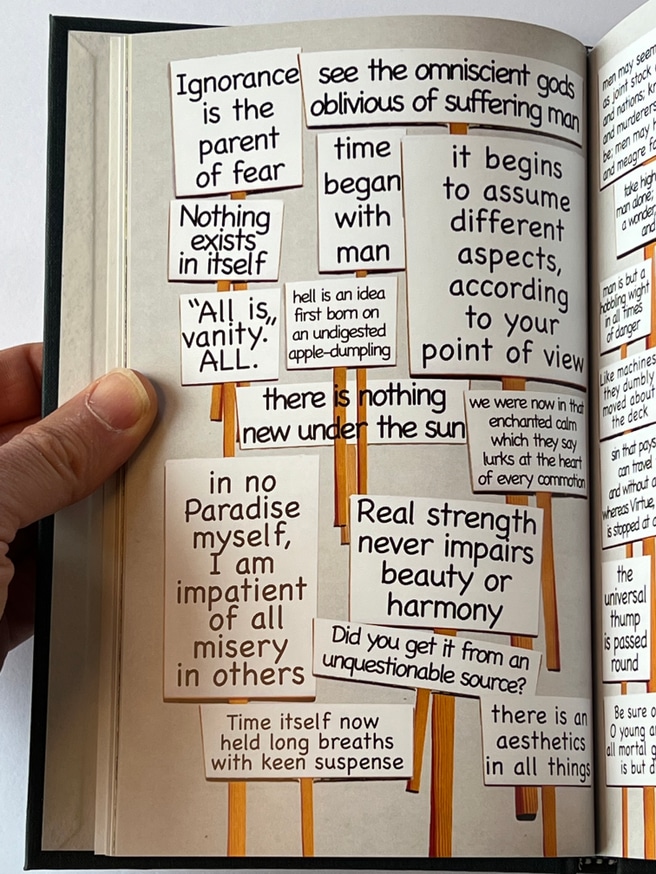 Ignorance
is the
parent
of fear
see the omniscient gods
oblivious of suffering man
time
began
with
man
it begins
to assume
different
aspects,
according
to your
point of view
Nothing
exists
in itself
"All is
vanity."
ALL.
hell is an idea
first born on
an undigested
apple-dumpling
there is nothing
new under the sun
we were now in that
enchanted calm
which they say
lurks at the heart
of every commotion
in no
Paradise
myself,
I am
impatient
of all
misery
in others
Real strength
never impairs
beauty or
harmony
Did you get it from an
unquestionable source?
Time itself now
held long breaths
with keen suspense
there is an
aesthetics
in all things
men may seem
as joint stock
and nations,
and murderers
be; men may
and meagre
take high
man alone;
a wonder,
and
man is but a
hobbling wight
in all times
of danger
Like machines
they dumbly
moved about
the deck
sin that pays
can travel
and without a
whereas Virtue,
is stopped at
the
universal
thump
is passed
round
Be sure
O young
all mortal
is but